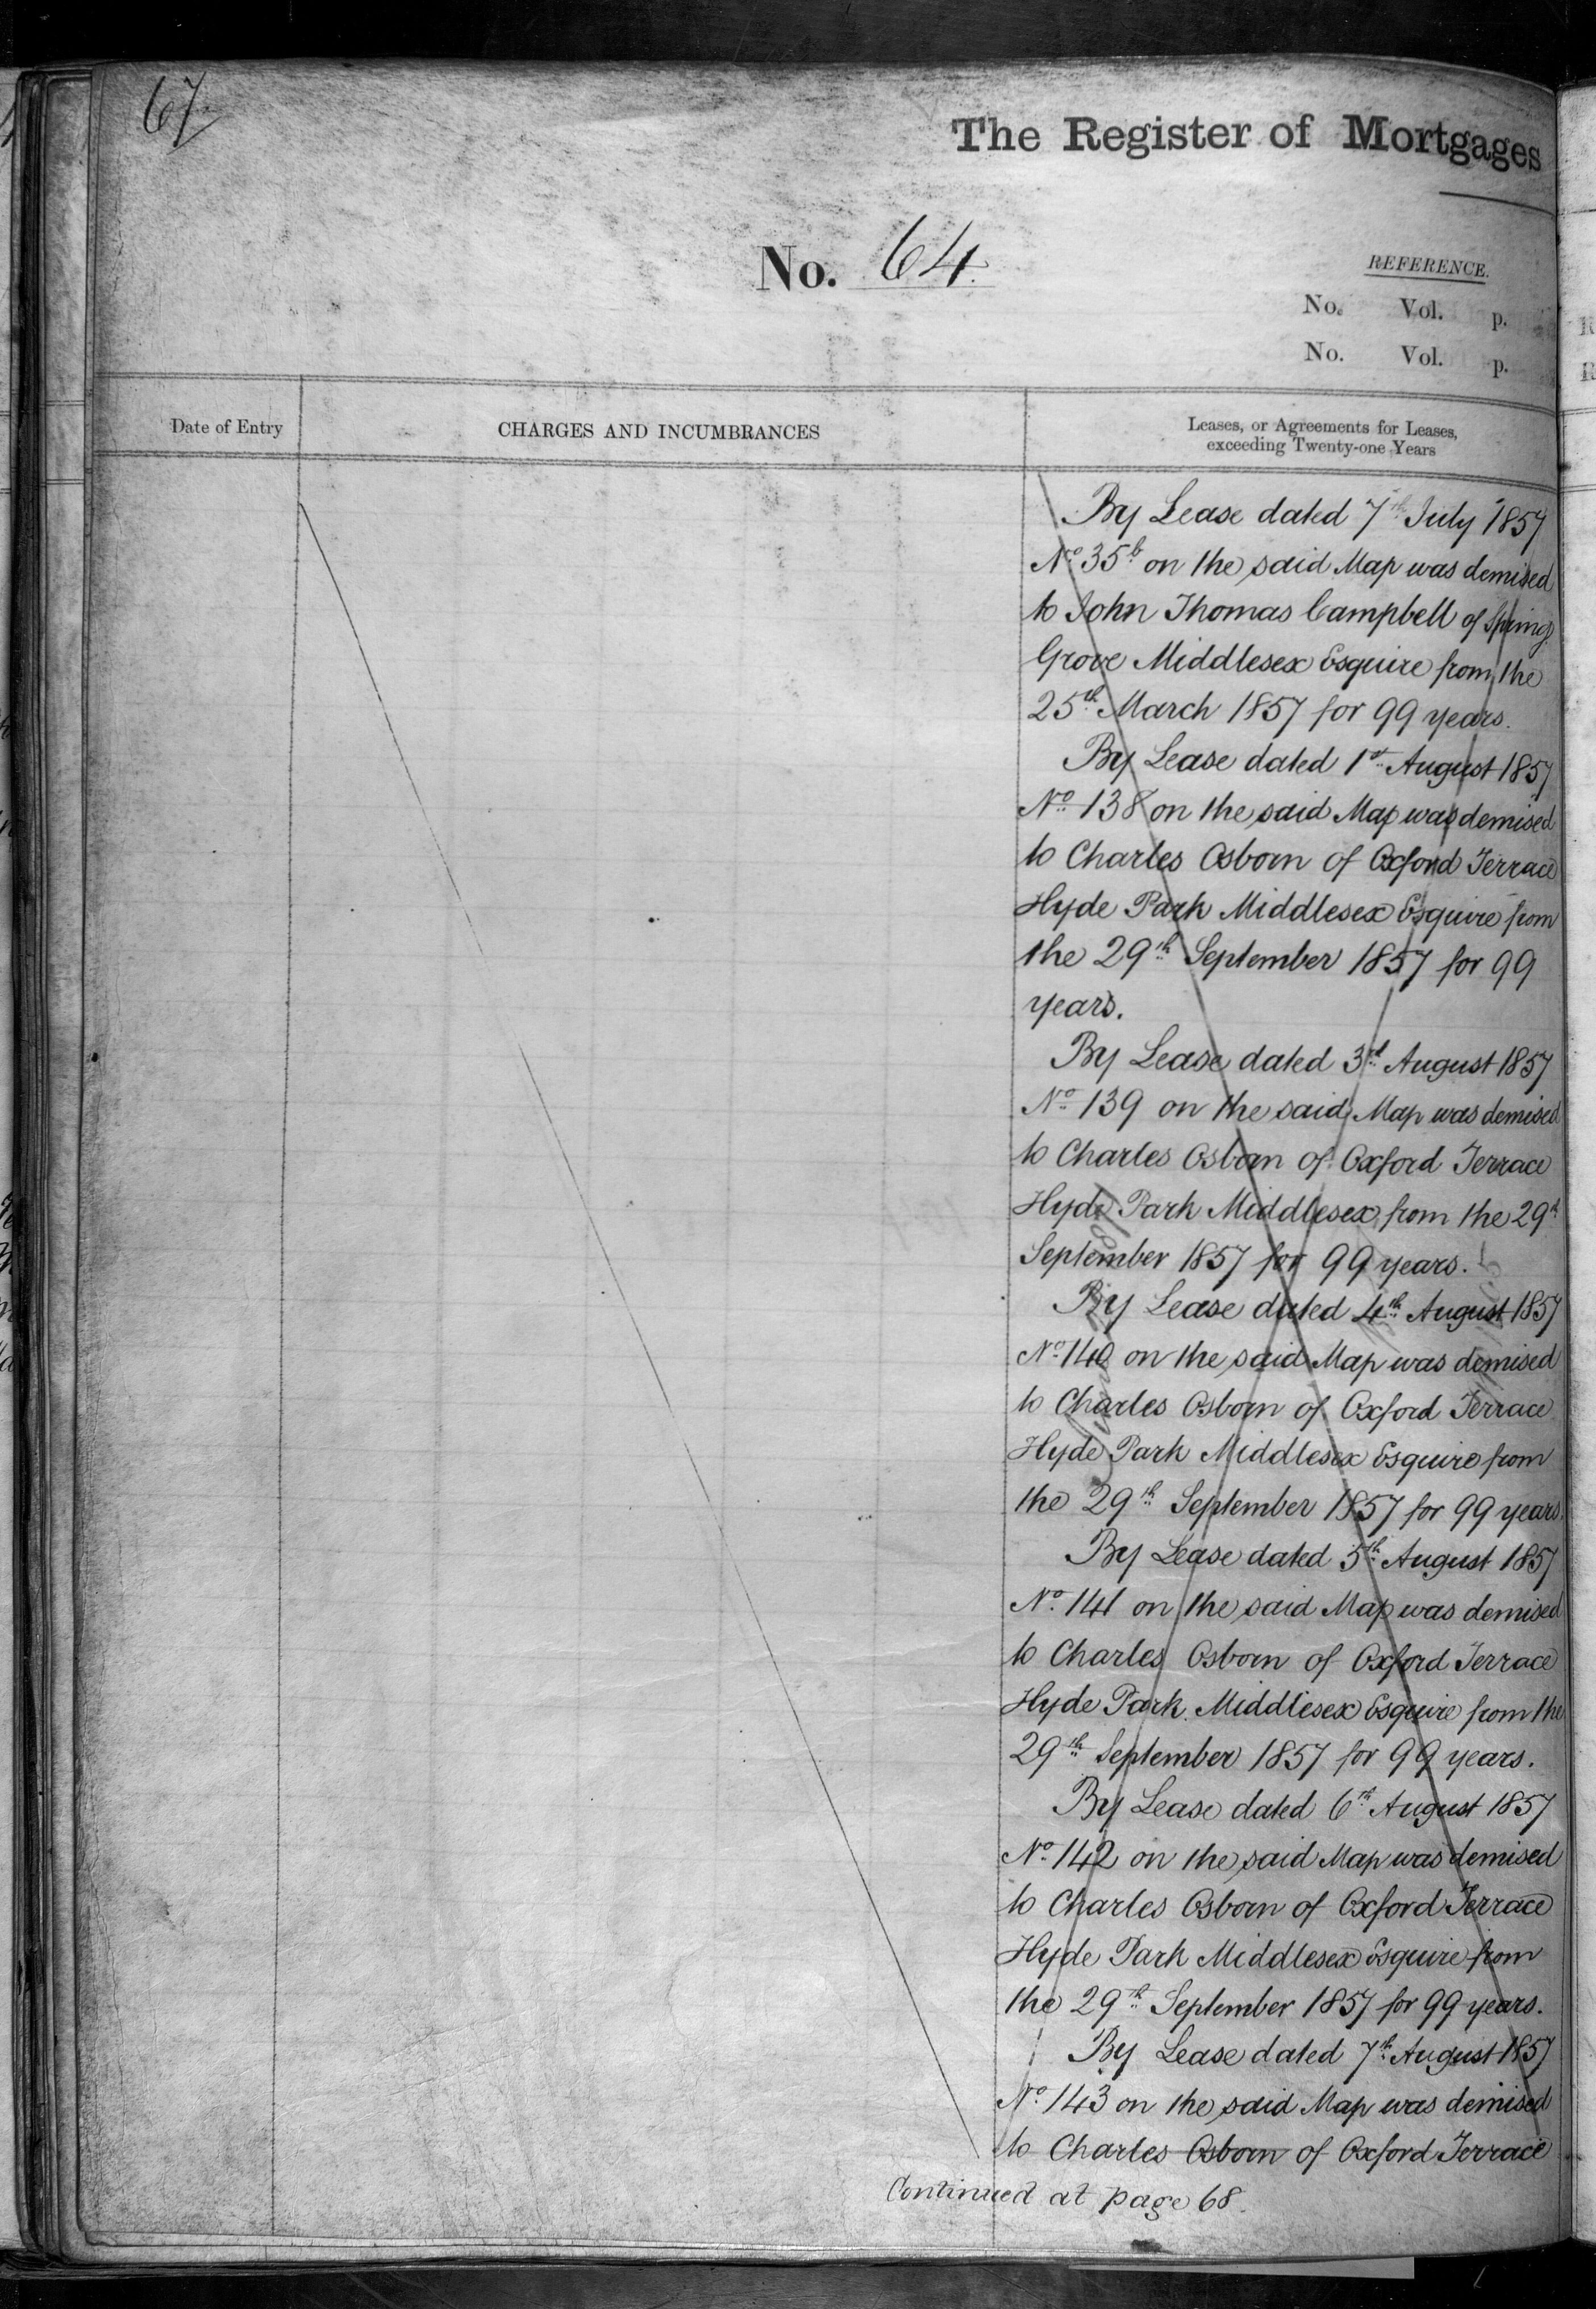 67
The Register of Mortgages
No. 64
REFERENCE.
No. Vol. p.
No. Vol. p.
Date of Entry
CHARGES AND INCUMBRANCES
Leases, or Agreements for Leases,
exceeding Twenty-one Years
By Lease dated 7th July 1857
No 35b on the said Map was demised
to John Thomas Campbell of Spring
Grove Middlesex Esquire from the
25th March 1857 for 99 years.
By Lease dated 1st August 1857
No 138 on the said Map was demised
to Charles Osborn of Oxford Terrace
Hyde Park Middlesex Esquire from
the 29th September 1857 for 99
years.
By Lease dated 3rd August 1857
No 139 on the said Map was demised
to Charles Osborn of Oxford Terrace
Hyde Park Middlesex from the 29th
September 1857 for 99 years.
By Lease dated 4th August 1857
No 140 on the said Map was demised
to Charles Osborn of Oxford Terrace
Hyde Park Middlesex Esquire from
the 29th September 1857 for 99 years.
By Lease dated 5th August 1857
No 141 on the said Map was demised
to Charles Osborn of Oxford Terrace
Hyde Park Middlesex Esquire from the
29th September 1857 for 99 years.
By Lease dated 6th August 1857
No 142 on the said Map was demised
to Charles Osborn of Oxford Terrace
Hyde Park Middlesex Esquire from
the 29th September 1857 for 99 years.
By Lease dated 7th August 1857
No 143 on the said Map was demised
to Charles Osborn of Oxford Terrace
Continued at page 68.